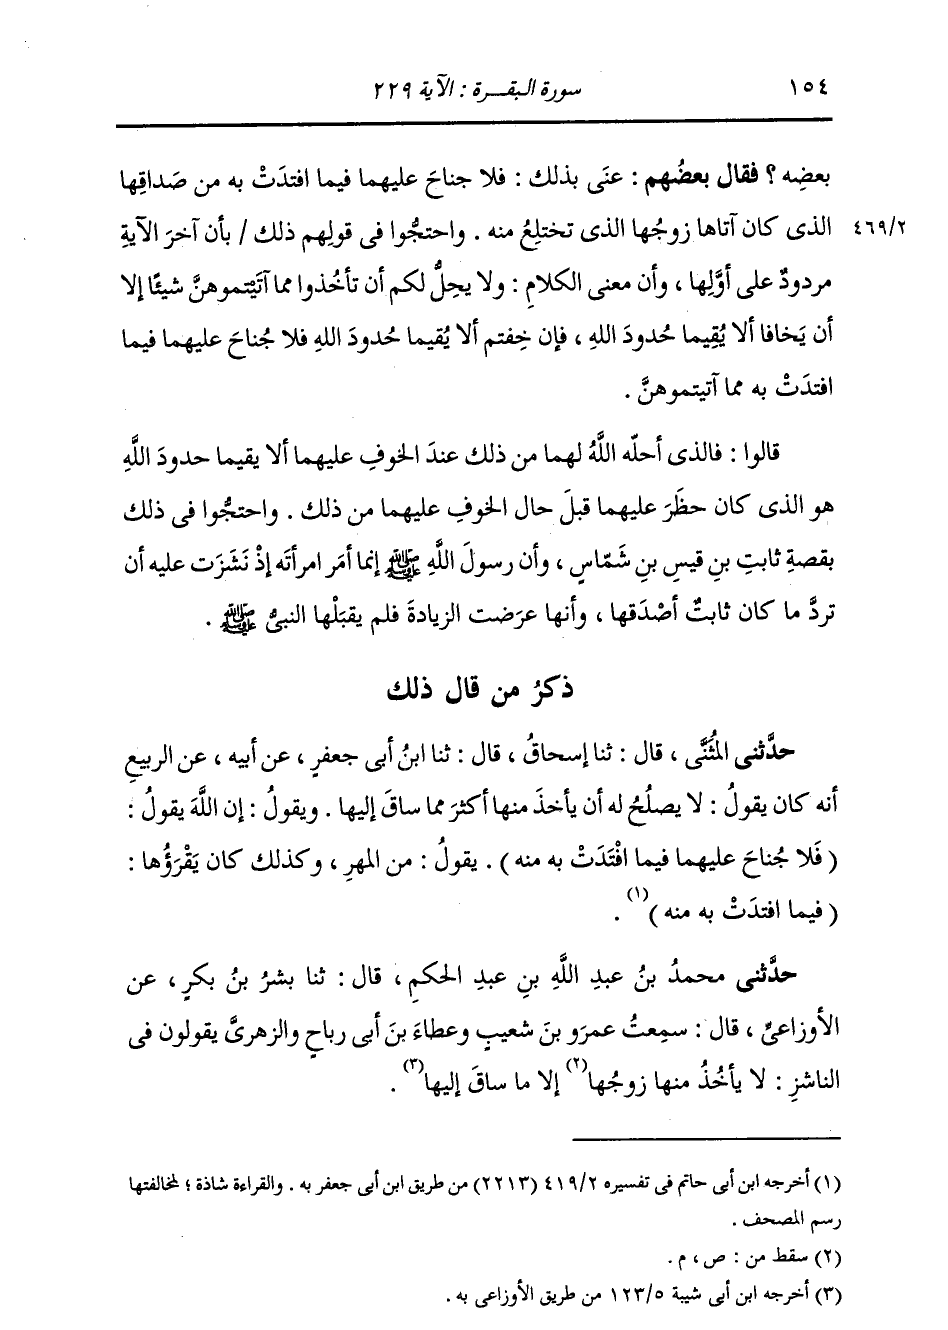 ١٥٤ سورة البقرة : الآية ٢٢٩
بعضِه ؟ فقال بعضُهم : عنَى بذلك : فلا جناحَ عليهما فيما افتدَتْ به من صَداقِها
٤٦٩/٢ الذى كان آتاها زوجُها الذى تختلِعُ منه . واحتجُّوا فى قولِهم ذلك / بأن آخرَ الآيةِ
مردودٌ على أوَّلِها ، وأن معنى الكلامِ : ولا يحِلُّ لكم أن تأخُذوا مما آتَيْتموهنَّ شيئًا إلا
أن يَخافا ألا يُقِيما حُدودَ اللهِ ، فإن خِفتم ألا يُقيما حُدودَ اللهِ فلا جُناحَ عليهما فيما
افتدَتْ به مما آتيتموهنَّ .
قالوا : فالذى أحلّه اللَّهُ لهما من ذلك عندَ الخوفِ عليهما ألا يقيما حدودَ اللَّهِ
هو الذى كان حظَرَ عليهما قبلَ حال الخوفِ عليهما من ذلك . واحتجُّوا فى ذلك
بقصةِ ثابتِ بنِ قيسِ بنِ شَمّاسٍ ، وأن رسولَ اللَّهِ ﷺ إنما أمَر امرأتَه إذْ نَشَزَت عليه أن
تردَّ ما كان ثابتٌ أصْدَقها ، وأنها عرَضت الزيادةَ فلم يقبَلْها النبىُّ ﷺ .
ذكرُ من قال ذلك
حدَّثنى المُثنَّى ، قال : ثنا إسحاقُ ، قال : ثنا ابنُ أبى جعفرٍ ، عن أبيه ، عن الربيعِ
أنه كان يقولُ : لا يصلُحُ له أن يأخذَ منها أكثرَ مما ساقَ إليها . ويقولُ : إن اللَّهَ يقولُ :
( فَلا جُناحَ عليهما فيما افْتَدَتْ به منه ) . يقولُ : من المهرِ ، وكذلك كان يَقْرَؤُها :
( فيما افتدَتْ به منه )(١) .
حدَّثنى محمدُ بنُ عبدِ اللَّهِ بنِ عبدِ الحكمِ ، قال : ثنا بشرُ بنُ بكرٍ ، عن
الأوزاعىِّ ، قال : سمِعتُ عمرَو بنَ شعيبٍ وعطاءَ بنَ أبى رباحٍ والزهرىَّ يقولون فى
الناشزِ : لا يأخُذُ منها زوجُها(٢) إلا ما ساقَ إليها(٣) .
(١) أخرجه ابن أبى حاتم فى تفسيره ٤١٩/٢ (٢٢١٣) من طريق ابن أبى جعفر به . والقراءة شاذة ؛ لمخالفتها
رسم المصحف .
(٢) سقط من : ص ، م .
(٣) أخرجه ابن أبى شيبة ١٢٣/٥ من طريق الأوزاعى به .